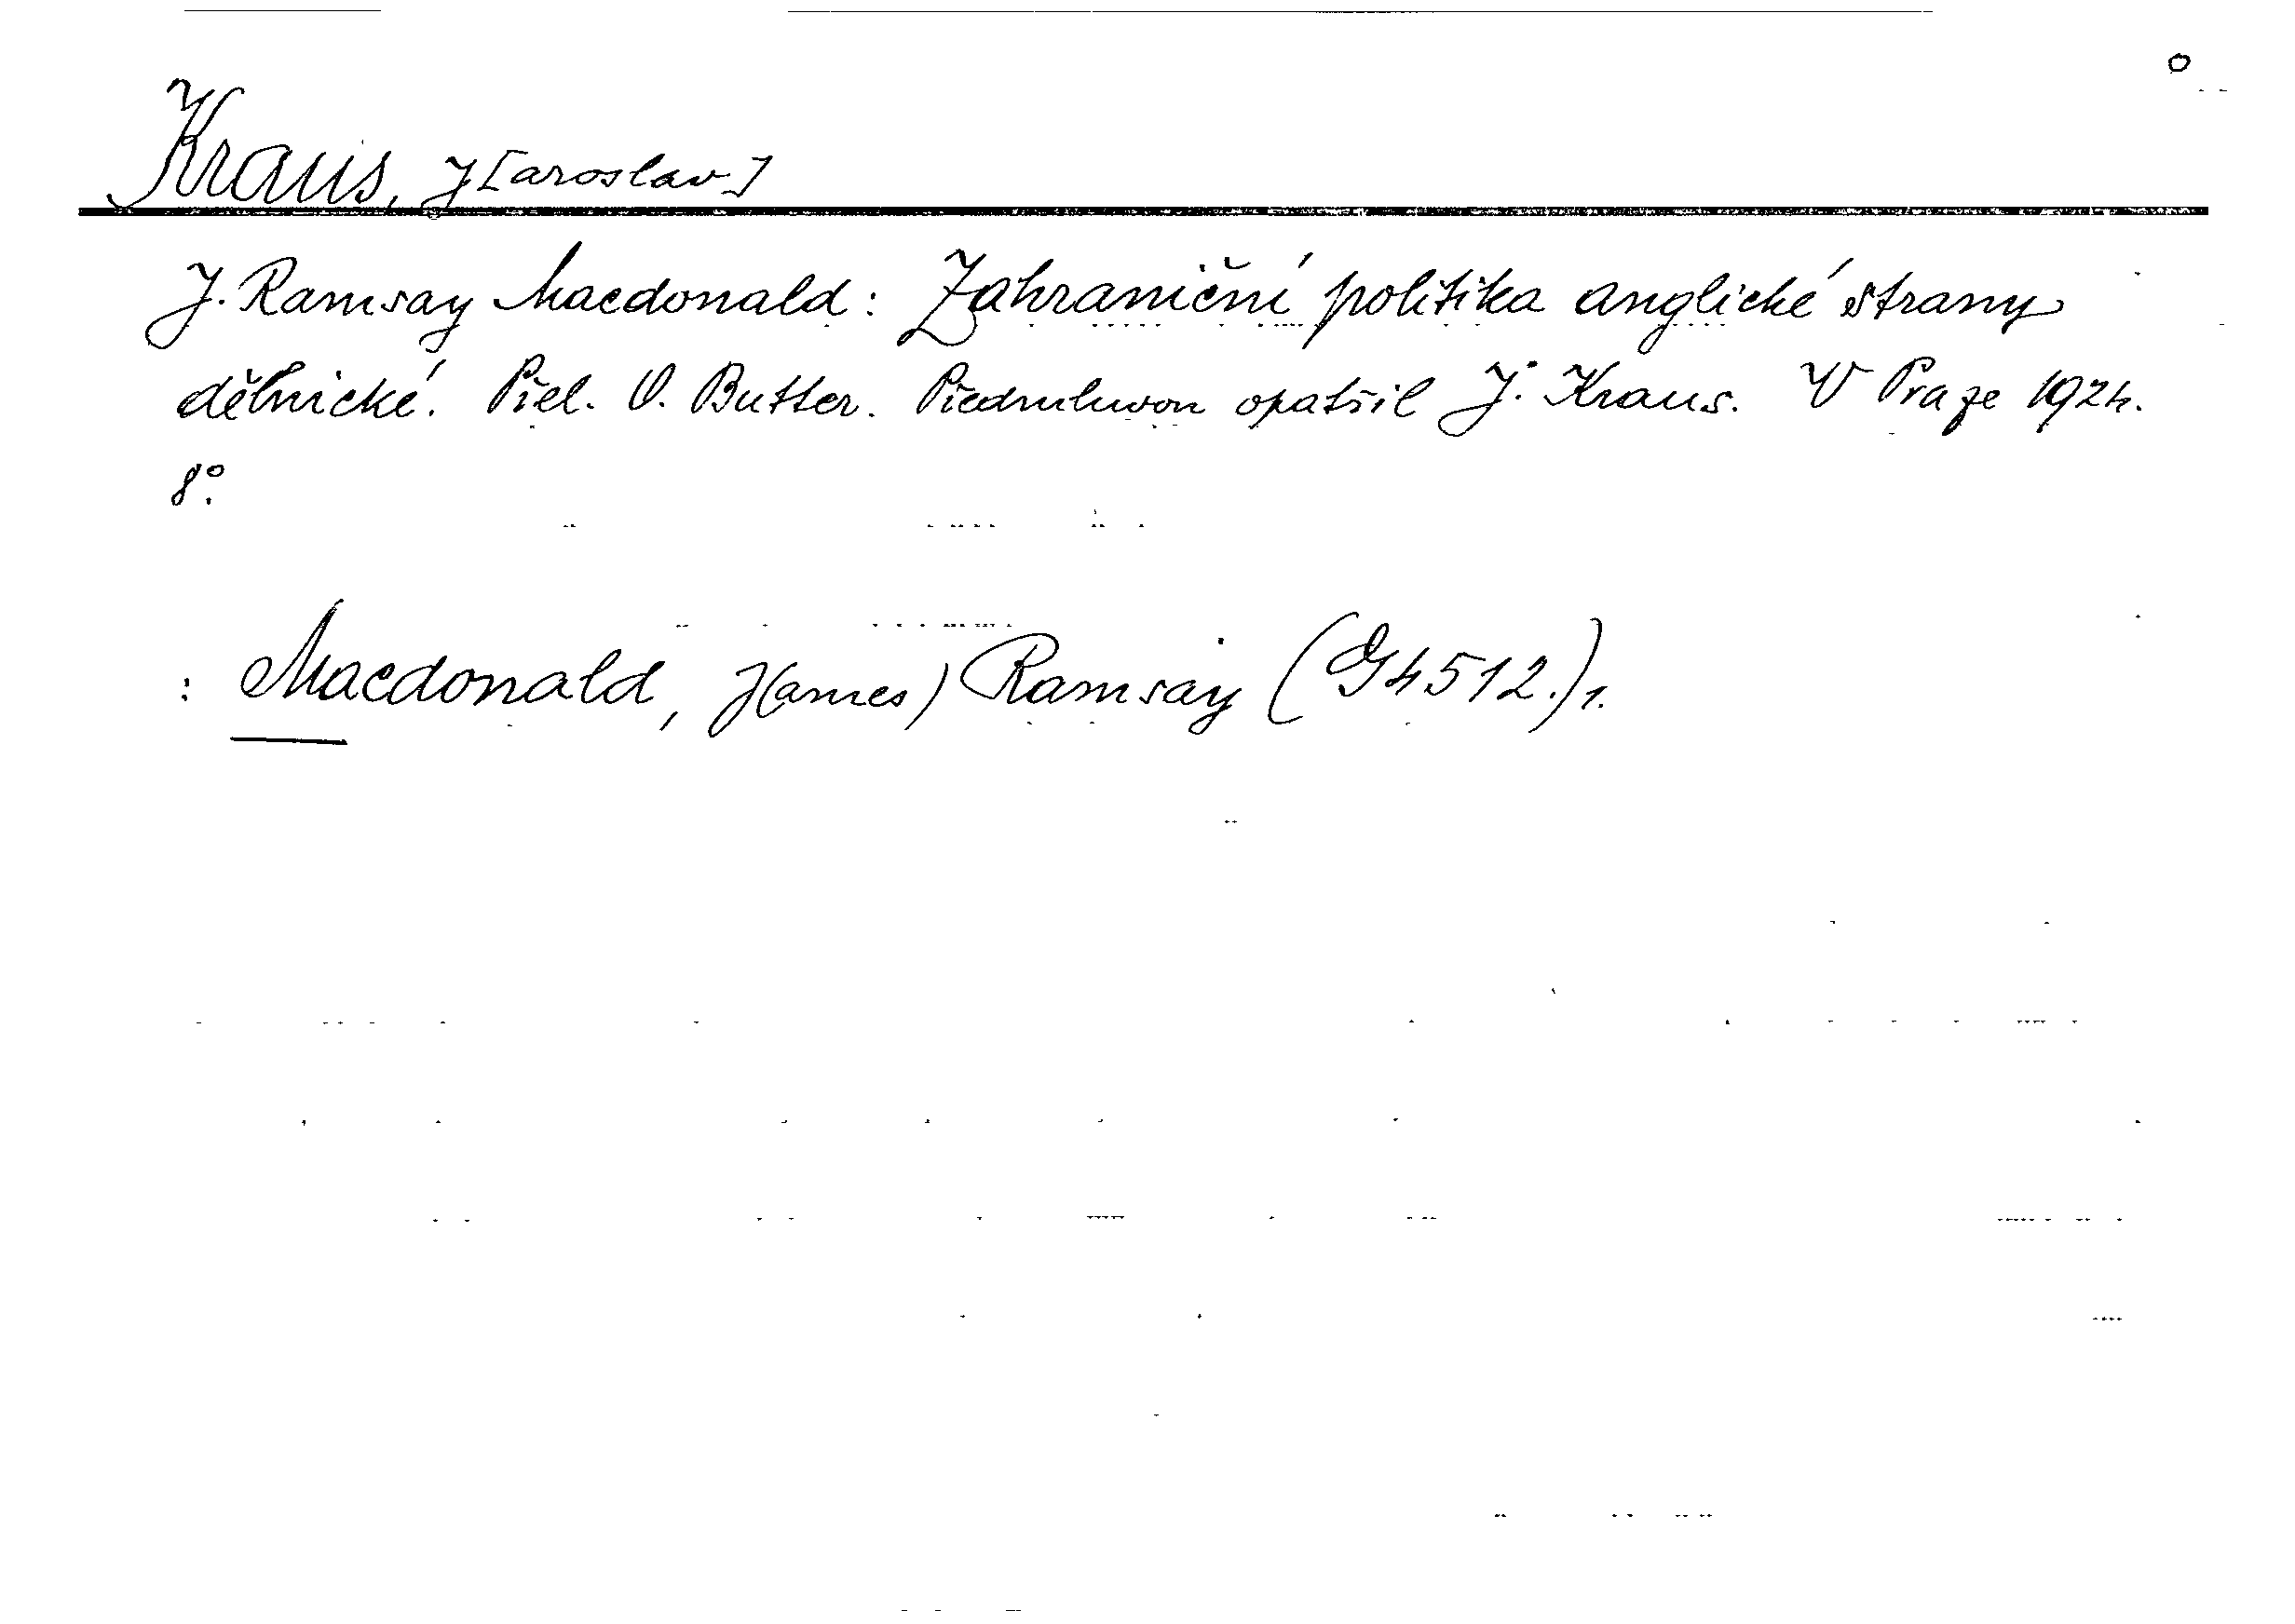 Kraus, J[aroslav]
J. Ramsay Macdonald: Zahraniční politika anglické strany
dělnické. Přel. O. Butter. Předmluvou opatřil J. Kraus. V Praze 1924.
8°.
: Macdonald, J(ames) Ramsay (G4512.)1.